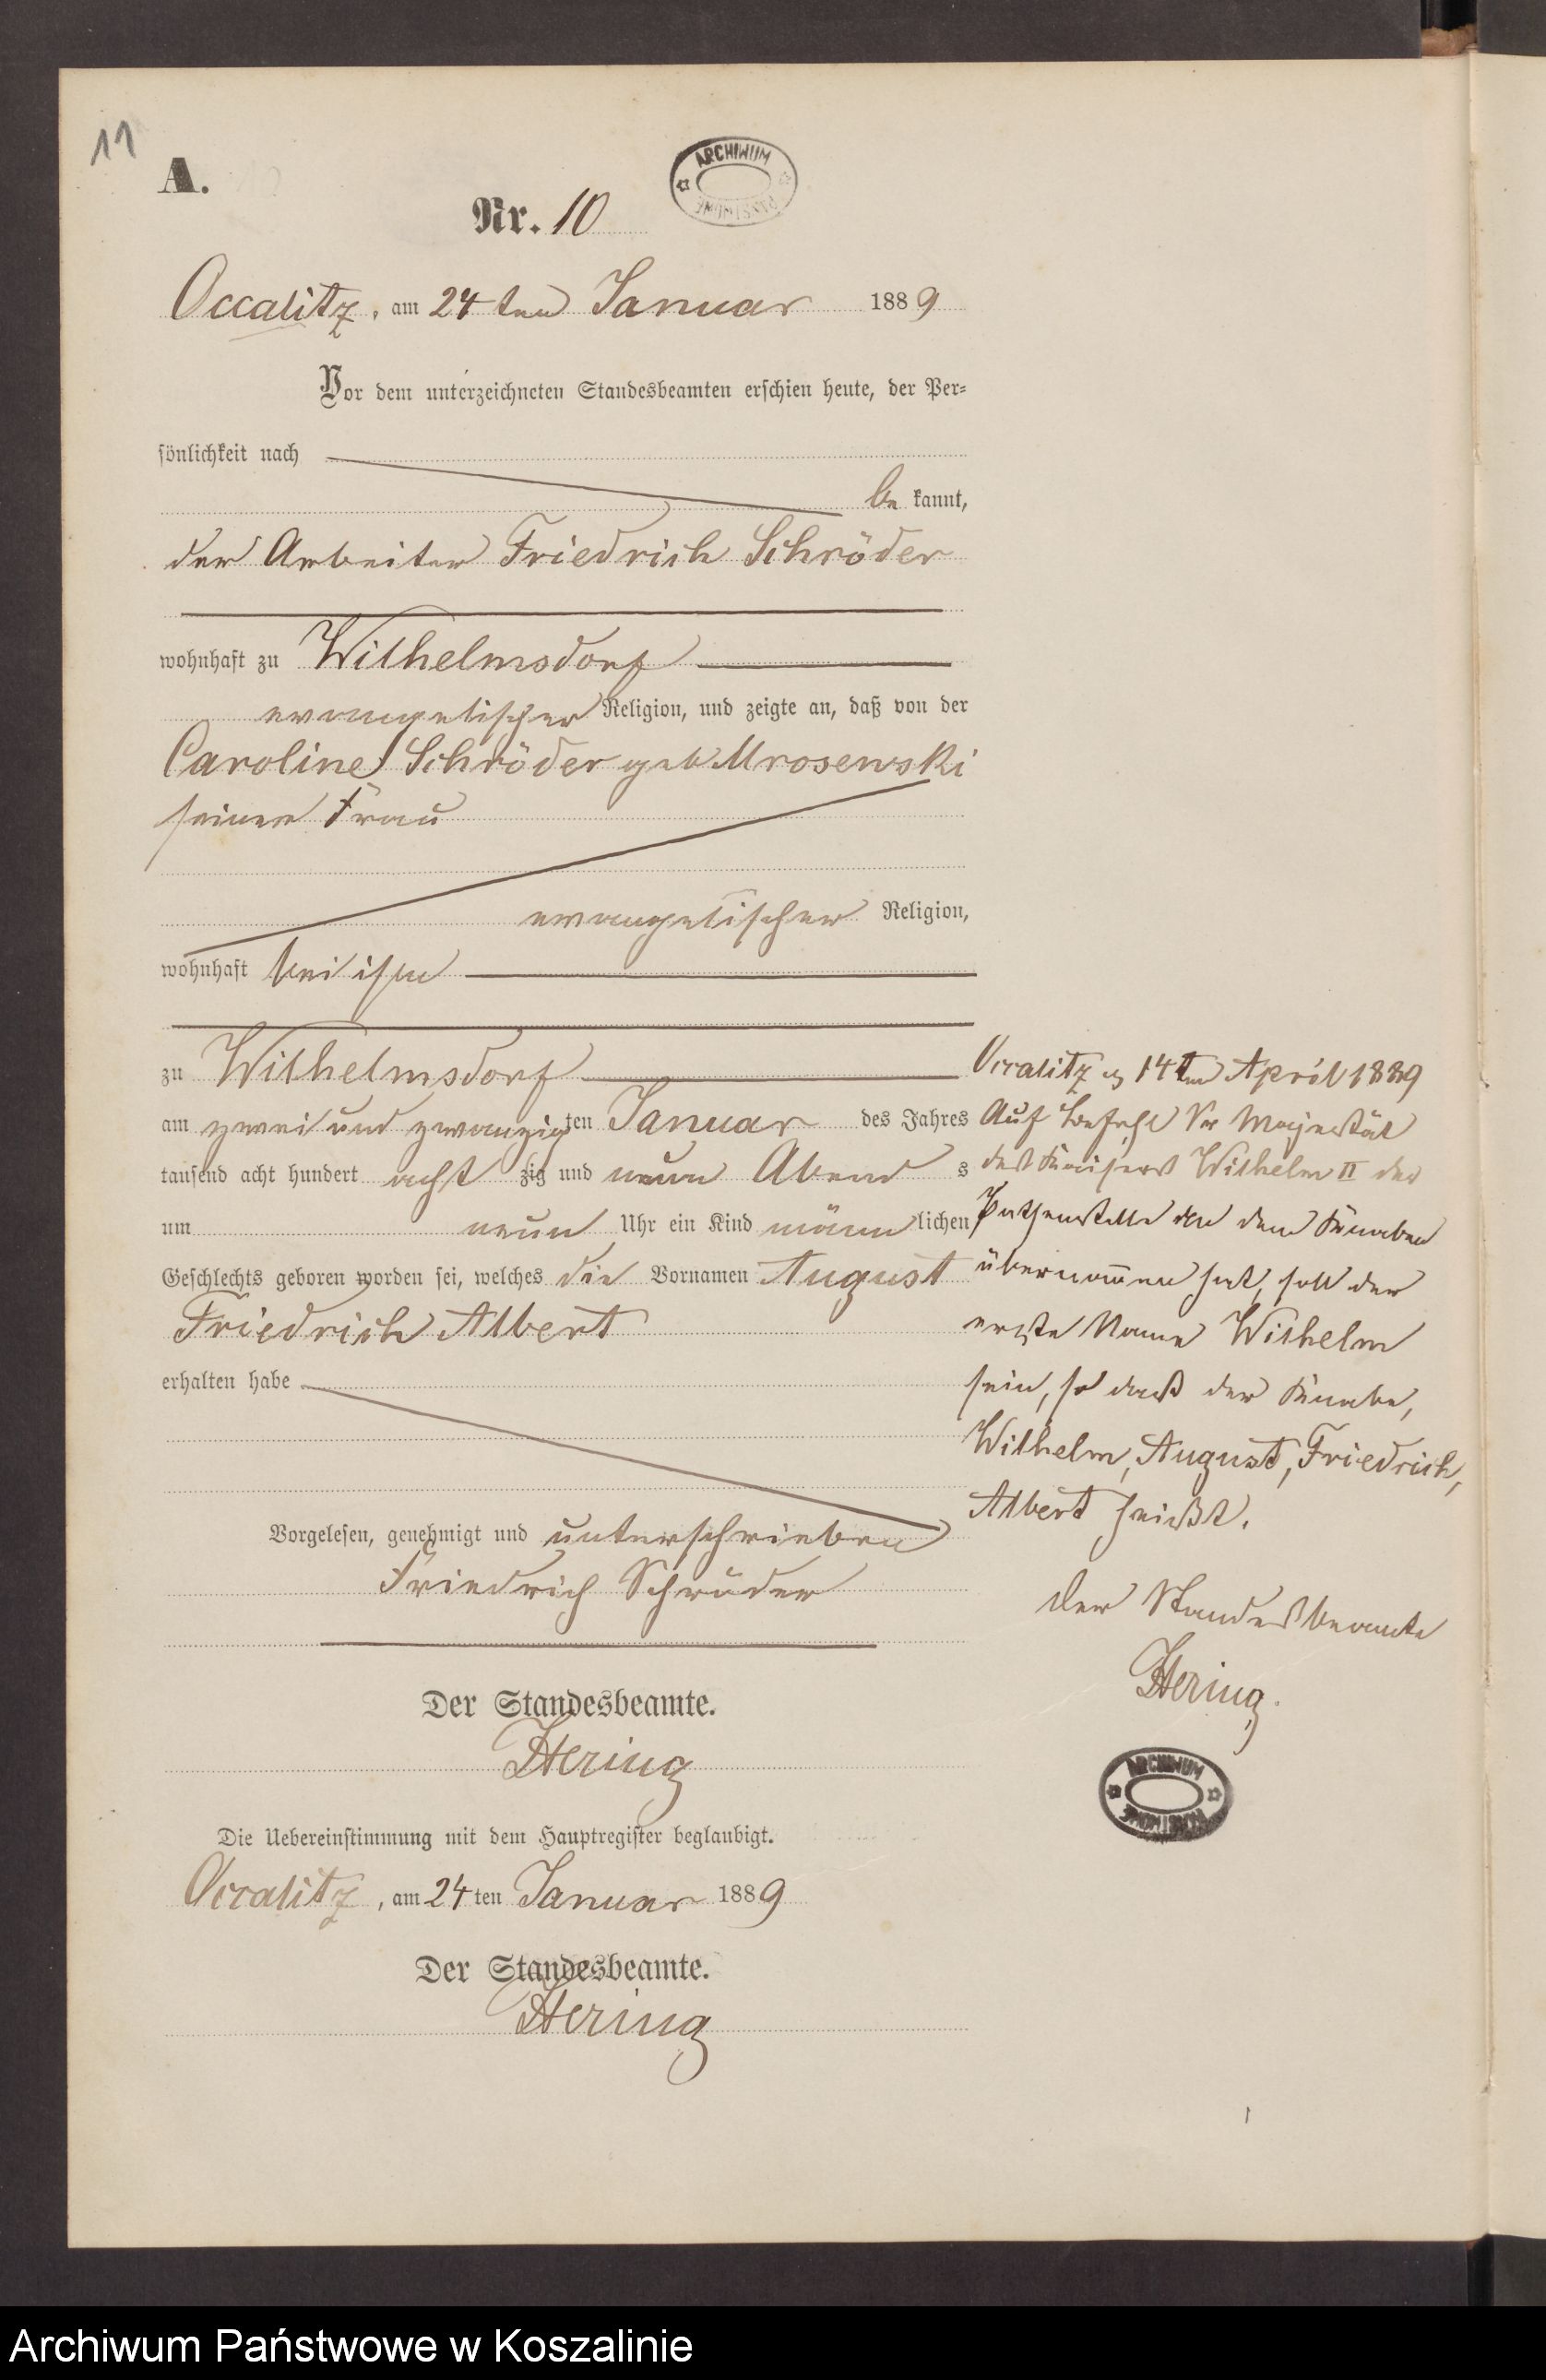 11
A.
ARCHIWUM
Nr. 10
Occalitz, am 24 ten Januar 1889
Vor dem unterzeichneten Standesbeamten erschien heute, der Per-
sönlichkeit nach
be kannt,
der Arbeiter Friedrich Schröder
wohnhaft zu Wilhelmsdorf
evangelischer Religion, und zeigte an, daß von der
Caroline Schröder geb Mrosewski
seiner Frau
evangelischer Religion,
wohnhaft bei ihm
zu Wilhelmsdorf
am zwei und zwanzig ten Januar des Jahres
tausend acht hundert acht zig und neun Abend s
um neun Uhr ein Kind männ lichen
Geschlechts geboren worden sei, welches die Vornamen August
Friedrich Albert
erhalten habe
Vorgelesen, genehmigt und unterschrieben
Friedrich Schröder
Der Standesbeamte.
Hering
Die Uebereinstimmung mit dem Hauptregister beglaubigt.
Occalitz, am 24 ten Januar 1889
Der Standesbeamte.
Hering
Occalitz 14ten April 1889
Auf Befehl Sr Majestät
deß Kaiserß Wilhelm II der
Pathenstelle an dem Knaben
übernom̅en hat, soll der
erste Name Wilhelm
sein, so daß der Knabe,
Wilhelm, August, Friedrich,
Albert heißt.
Der Standeßbeamte
Hering.
ARCHIWUM
Archiwum Państwowe w Koszalinie